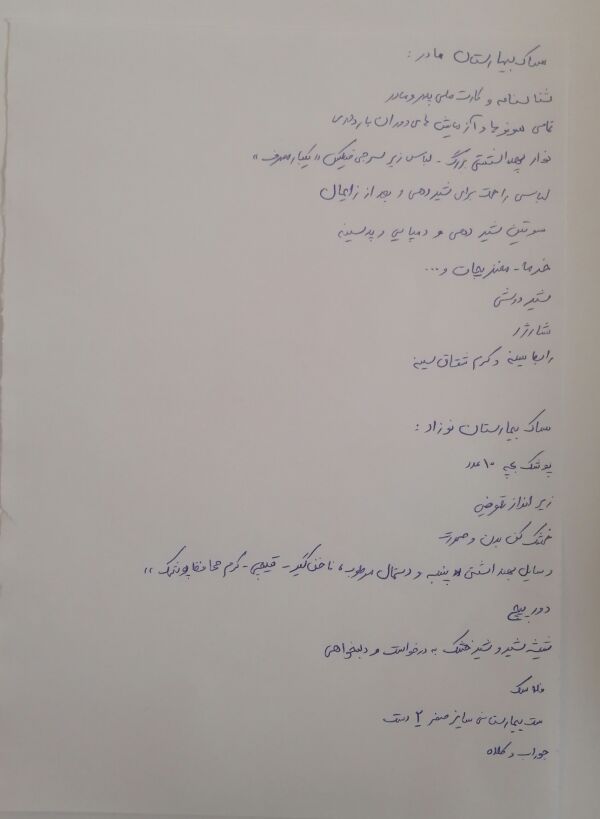 ساک بیمارستان مادر :
شناسنامه و کارت ملی پدر و مادر
تمامی سونوها و آزمایش های دوران بارداری
نوار بهداشتی بزرگ - لباس زیر نسرجی فیکس " یکبار مصرف "
لباس راحت برای شیردهی و بعد از زایمان
سوتین شیر دهی و دمپایی و پد سینه
خرما - مغزیجات و ...
شیر دوش
شارژر
رابط سینه و کرم شقاق سینه
ساک بیمارستان نوزاد :
پوشک بچه ۱۰ عدد
زیر انداز تعویض
خشک کن بدن و صورت
وسایل بهداشتی پنبه و دستمال مرطوب ، ناخن گیر - قیچی - کرم محافظ پوشک "
دور پیچ
شیشه شیر و شیر خشک به درخواست و دلبخواهی
فلاسک
ست بیمارستانی سایز صفر ۲ دست
جوراب و کلاه